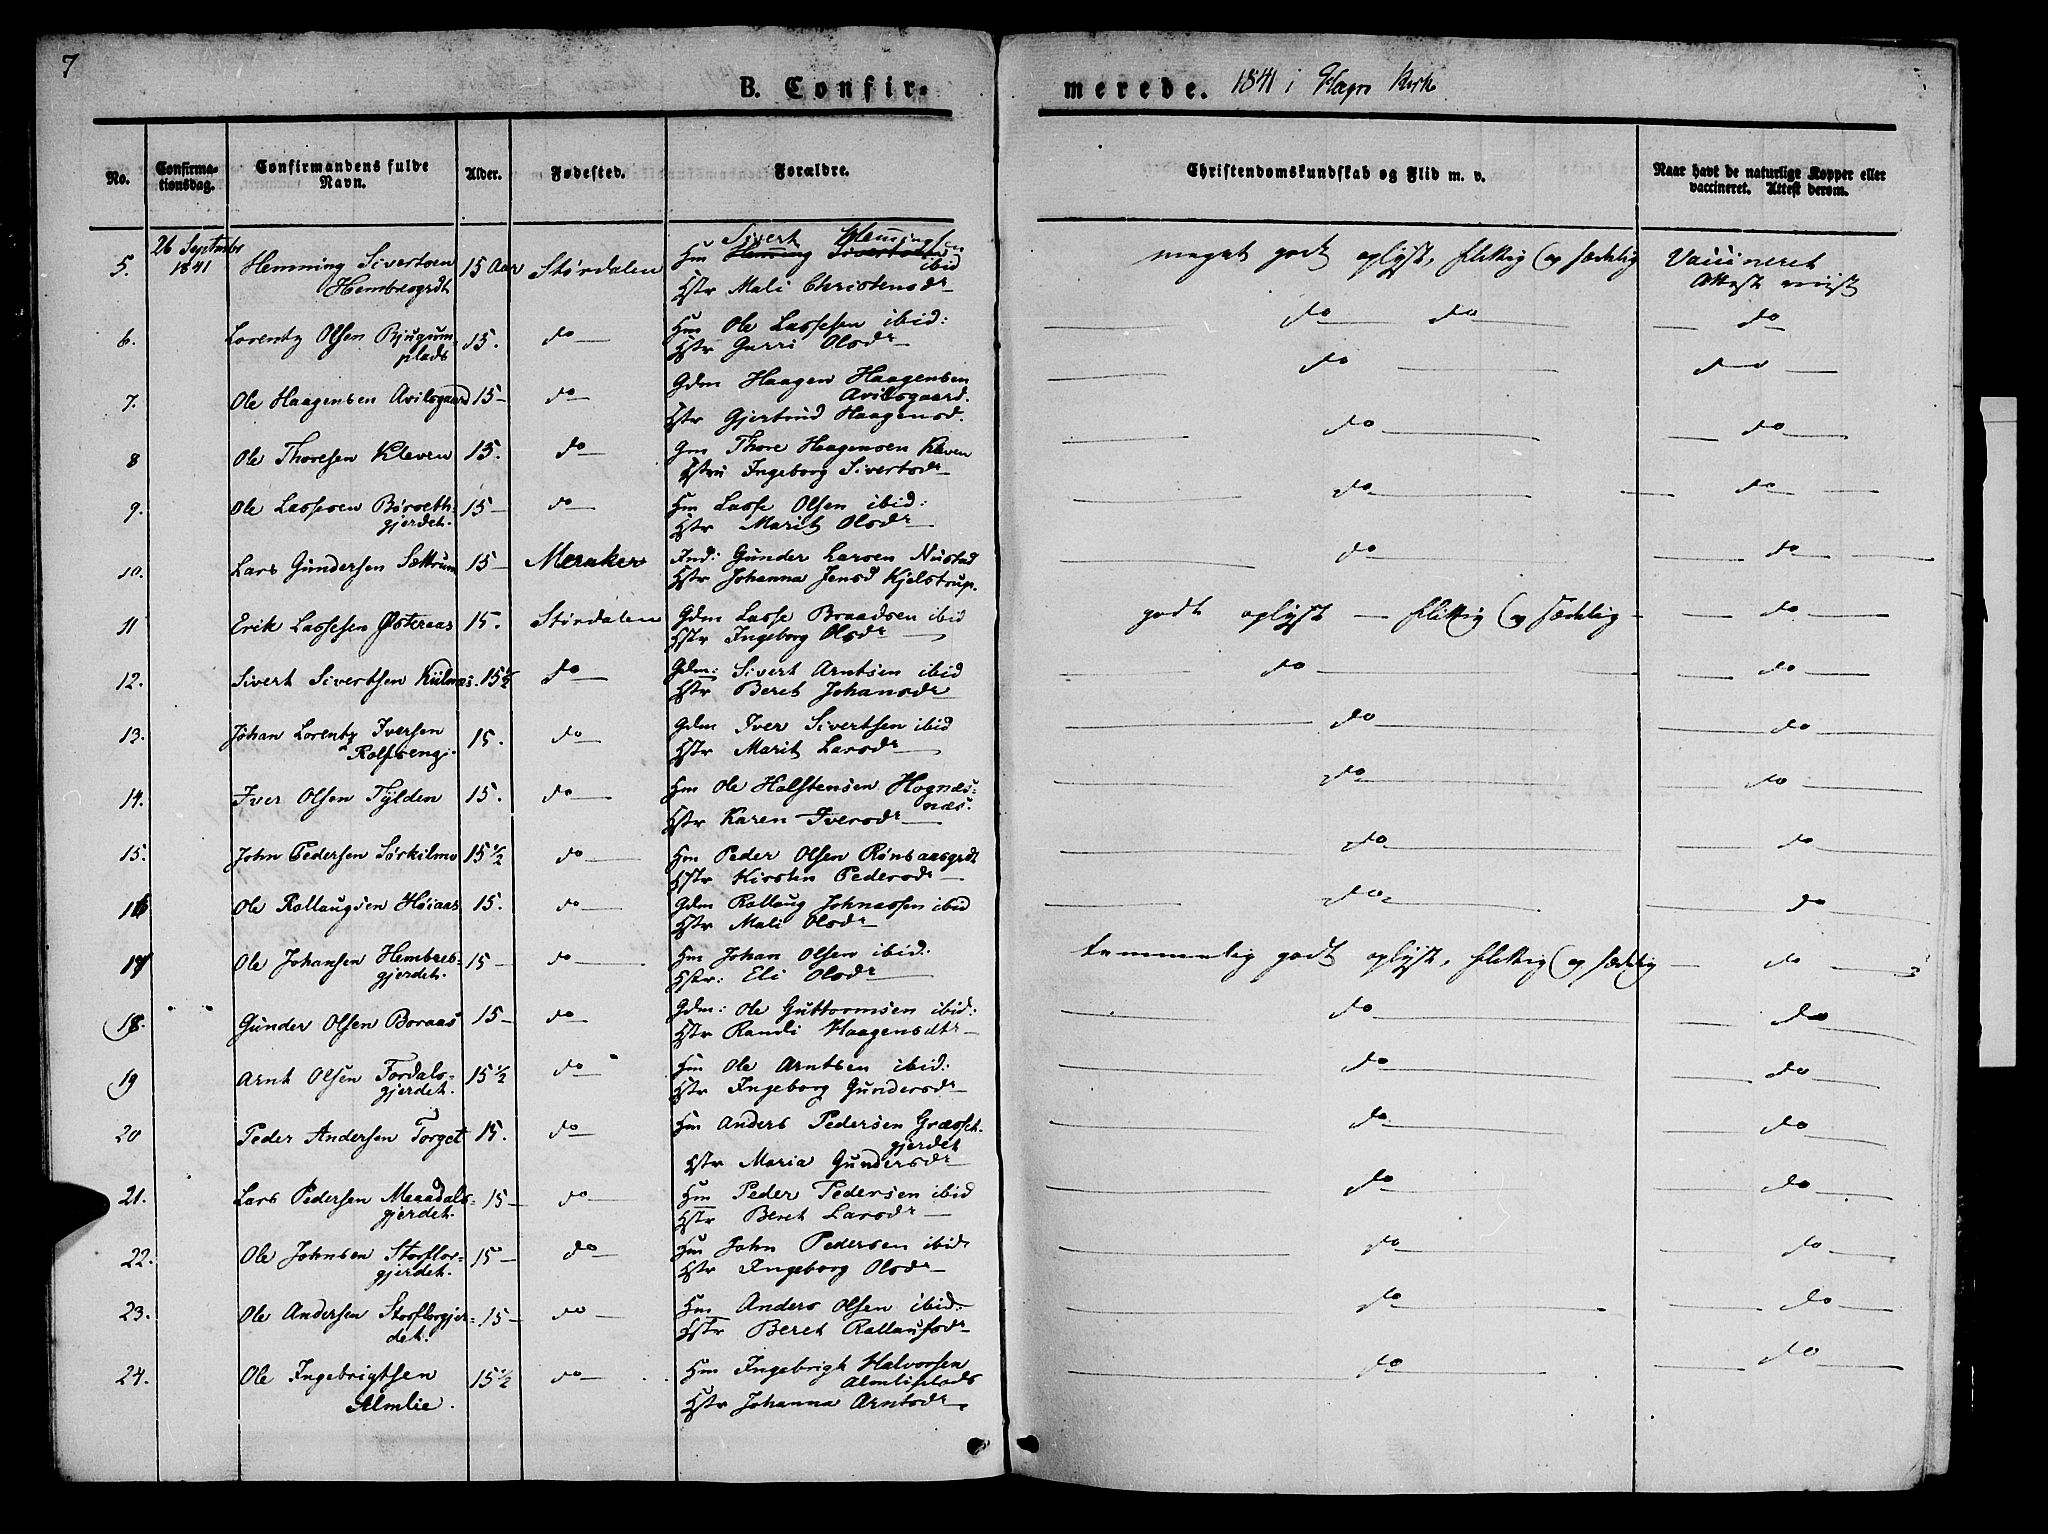 7
B. Confirmerede. 1841 i Hegre Kirke
No. Confirmationsdag. Confirmandens fulde Navn. Alder. Fødested. Forældre. Christendomskundskab og Flid m. v. Naar havt de naturlige Kopper eller vaccineret. Attest derom.
26 September Sivert Hemingsen
5. 1841 Hemming Sivertsen 15 Aar Størdalen Hm Heming Sivertsen ibid meget godt oplyst, flittig og sædelig Vaccineret
Hembregrdt Hstr Mali Christensdr Attest viist
6. Lorentz Olsen Bjugum- 15. do Hm Ole Lassesen ibid: do do do
plads Hstr Gurri Olsdr
7. Ole Haagensen Avilsgaard 15 do Gdm Haagen Haagensen do do
Avilsgaard.
Hstr Gjertrud Haagensd.
8 Ole Thoresen Kleven 15. do Gm Thore Haagensen Kleven do do
Hstru Ingeborg Sivertsdr
9. Ole Lassesen Børseth- 15 do Hm Lasse Olsen ibid: do do
gjerdet. Hstr Marit Olsdr
10. Lars Gundersen Sættrum 15 Meraker Ind: Gunder Larsen Nustad do do
Hstr Johanna Jensd Kjelstrup.
11 Erik Lassesen Østeraas 15. Størdalen Gdm Lasse Braadsen ibid godt oplyst flittig og sædelig do
Hstr Ingeborg Olsdr
12. Sivert Sivertsen Kiilnæs. 15½ do Gdm: Sivert Arntsen ibid do do
Hstr Beret Johansdr
13. Johan Lorentz Iversen 15. do Gdm Iver Sivertsen ibid do do
Rolfsengj. Hstr Marit Larsdr
14. Iver Olsen Tylden 15. do Hm Ole Halstensen Hognæs- do do
næs.
Hstr Karen Iversdr
15. John Pedersen Sørkilmo 15½ do Hm Peder Olsen Rønsaasgrdt do do
Hstr Kirsten Pedersdr
16 Ole Rollaugsen Høiaas 15. do Gdm Rollaug Johnassen ibid do do
Hstr Mali Olsdr
17 Ole Johansen Hembres- 15 do Hm Johan Olsen ibid: temmelig godt oplyst, flittig og sædelig do
gjerdet. Hstr: Eli Olsdr
18. Gunder Olsen Boraas 15 do Gdm: Ole Guttormsen ibid: do do
Hstr Randi Haagensdtr
19 Arnt Olsen Fordals- 15½ do Hm Ole Arntsen ibid: do do
gjerdet. Hstr Ingeborg Gundersdr
20 Peder Andersen Torget 15. do Hm Anders Pedersen Græsset- do do
gjerdet
Hstr Maria Gundersdr
21. Lars Pedersen Meaadals- 15 do Hm Peder Pedersen ibid do do
gjerdet. Hstr Beret Larsdr
22. Ole Johnsen Storflor- 15 do Hm John Pedersen ibid do do
gjerdet. Hstr Ingeborg Olsdr
23. Ole Andersen Storflorgjer- 15 do Hm Anders Olsen ibid: do do
det. Hstr Beret Rollaufsdr
24. Ole Ingebrigtsen 15½ do Hm Ingebrigt Halvorsen do do
Almlie. Almliplads
Hstr Johanna Arntsdr